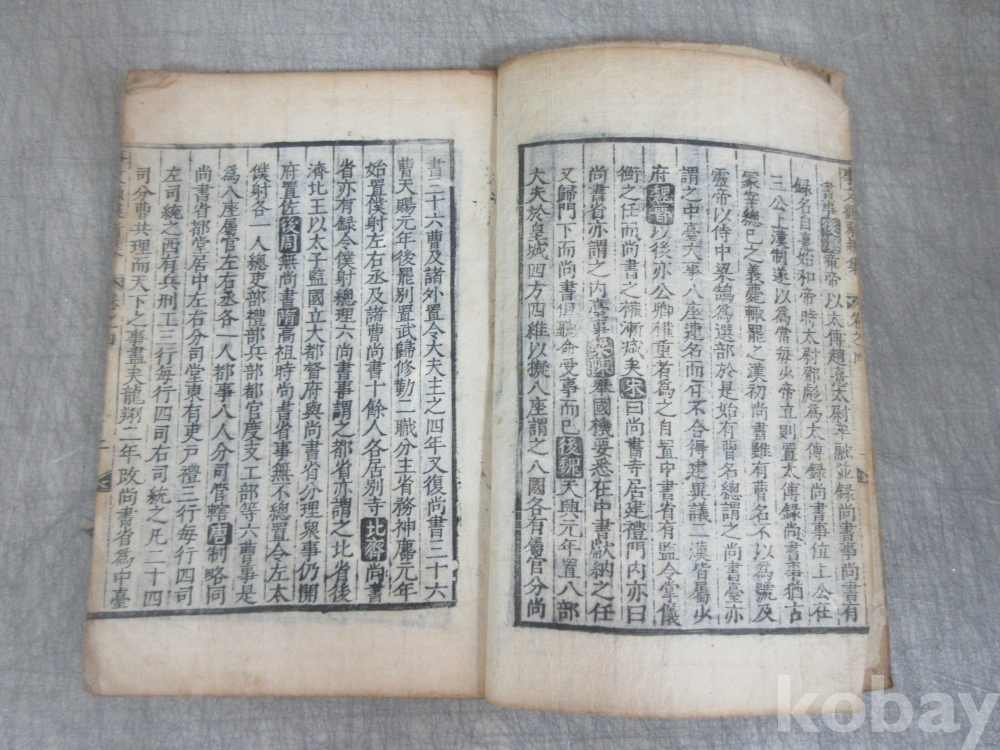 書事後漢章帝以太傅趙憙太尉牟融並録尚書事尚書有
録名自憙始和帝時太尉鄧彪爲太傅録尚書事位上公在
三公上漢制遂以爲常每少帝立則置太傅録尚書事猶古
冢宰總己之義薨輒罷之漢初尚書雖有曹名不以爲號及
靈帝以侍中梁鵠爲選部於是始有曹名總謂之尚書臺亦
謂之中臺大事八座連名而有不合得建異議二漢皆屬少
府魏晉以後亦公卿權重者爲之自置中書省有監令掌儀
衡之任而尚書之權漸减矣宋曰尚書寺居建禮門内亦曰
尚書省亦謂之内臺事梁陳舉國機要悉在中書獻納之任
又歸門下而尚書但聽命受事而已後魏天興元年置八部
大夫於皇城四方四維以擬八座謂之八國各有屬官分尚
書三十六曹及諸外置令大夫主之四年又復尚書三十六
曹天賜元年後罷別置武歸修勤二職分主省務神䴥元年
始置僕射左右丞及諸曹尚書十餘人各居别寺北齊尚書
省亦有録令僕射總理六尚書事謂之都省亦謂之北省後
濟北王以太子監國立大都督府與尚書省分理衆事仍開
府置佐後周無尚書隋高祖時尚書省事無不總置令左太
僕射各一人總吏部禮部兵部都官度支工部等六曹事是
爲八座屬官左右丞各一人都事八人分司管轄唐制略同
尚書省都堂居中左右分司堂東有吏户禮三行每行四司
左司統之西有兵刑工三行每行四司右司統之凡二十四
司分曹共理而天下之事盡矣龍翔二年改尚書省爲中臺
kobay